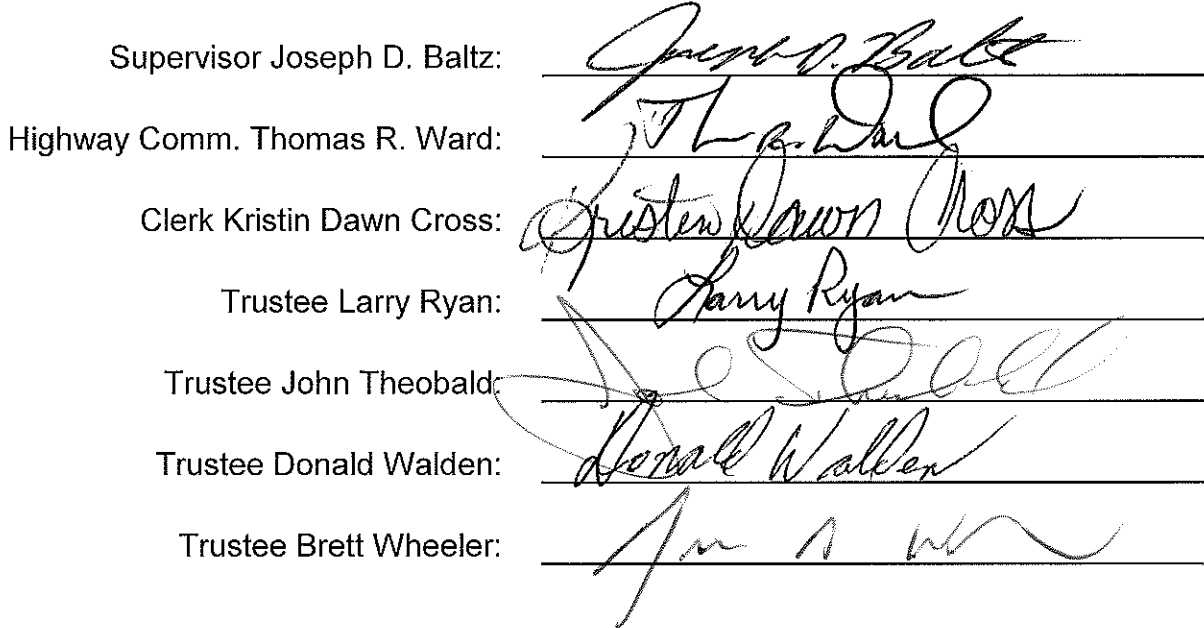 Supervisor Joseph D. Baltz: Joseph D. Baltz
Highway Comm. Thomas R. Ward: Tho R. Ward
Clerk Kristin Dawn Cross: Kristin Dawn Cross
Trustee Larry Ryan: Larry Ryan
Trustee John Theobald: Theobald
Trustee Donald Walden: Donald Walden
Trustee Brett Wheeler: